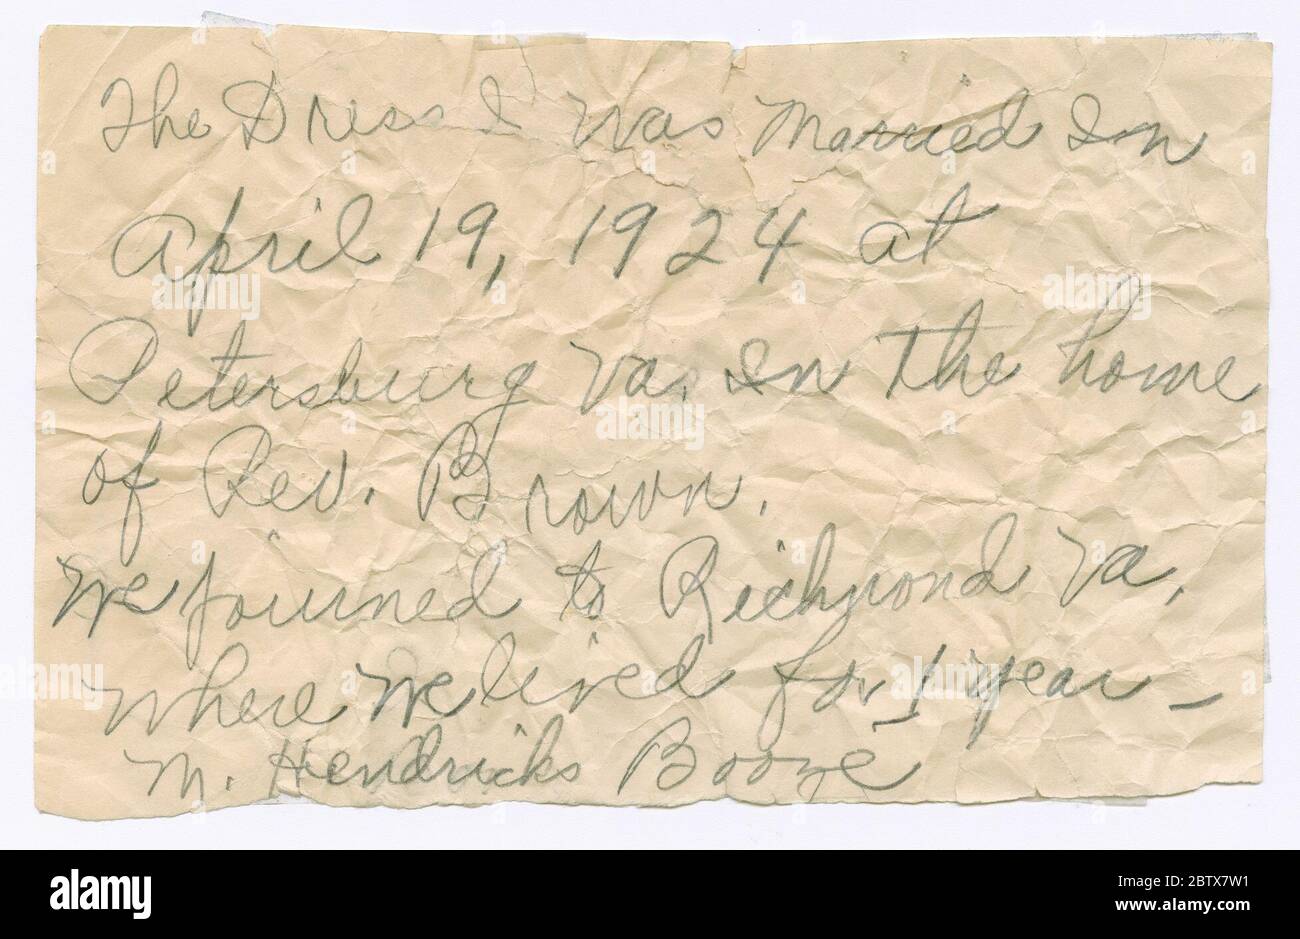 The Dress I Was Married In
April 19, 1924 at
Petersburg Va. In The home
of Rev. Brown.
We journed to Richmond Va,
where we lived for 1 year –
M. Hendricks Booze
alamy
Image ID: 2BTX7W1
www.alamy.com